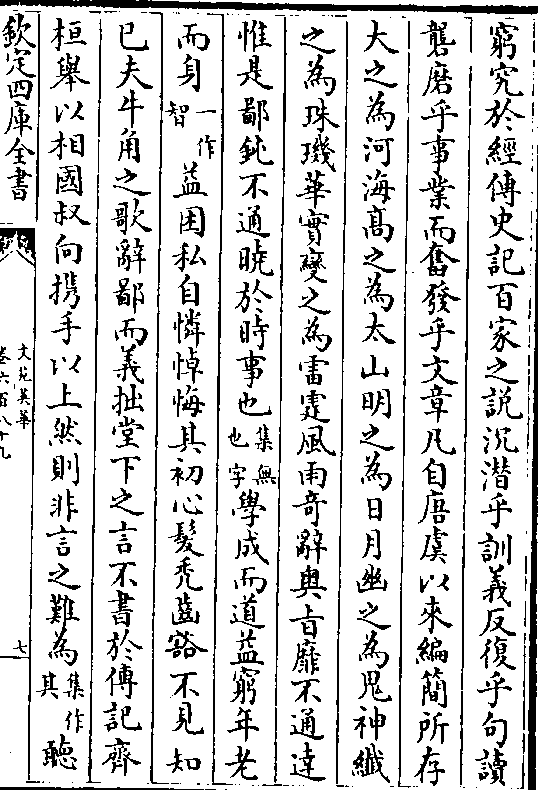 窮究於經傳史記百家之説沉潛乎訓義反復乎句讀
礱磨乎事業而奮發乎文章凡自唐虞以來編簡所存
大之為河海髙之為太山明之為日月幽之為鬼神纎
之為珠璣華實變之為雷霆風雨竒辭奥㫖靡不通逹
惟是鄙鈍不通曉於時事也集無也字學成而道益窮年老
而身一作智益困私自憐悼悔其初心髮秃齒豁不見知
已夫牛角之歌辭鄙而義拙堂下之言不書於傳記齊
桓舉以相國叔向携手以上然則非言之難為集作其聽
欽定四庫全書
文苑英華
卷六百八十九
七